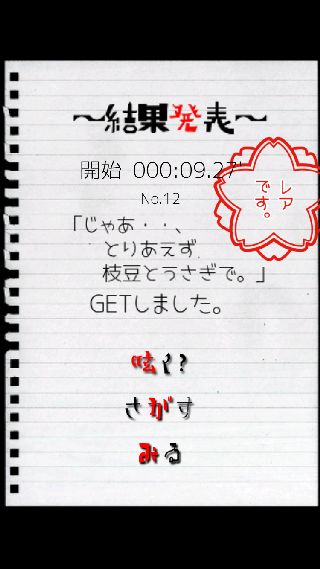 ～結果発表～
開始 000:09.27
レア
です。
No.12
「じゃあ・・、
とりあえず
枝豆とうさぎで。」
GETしました。
呟く?
さがす
みる